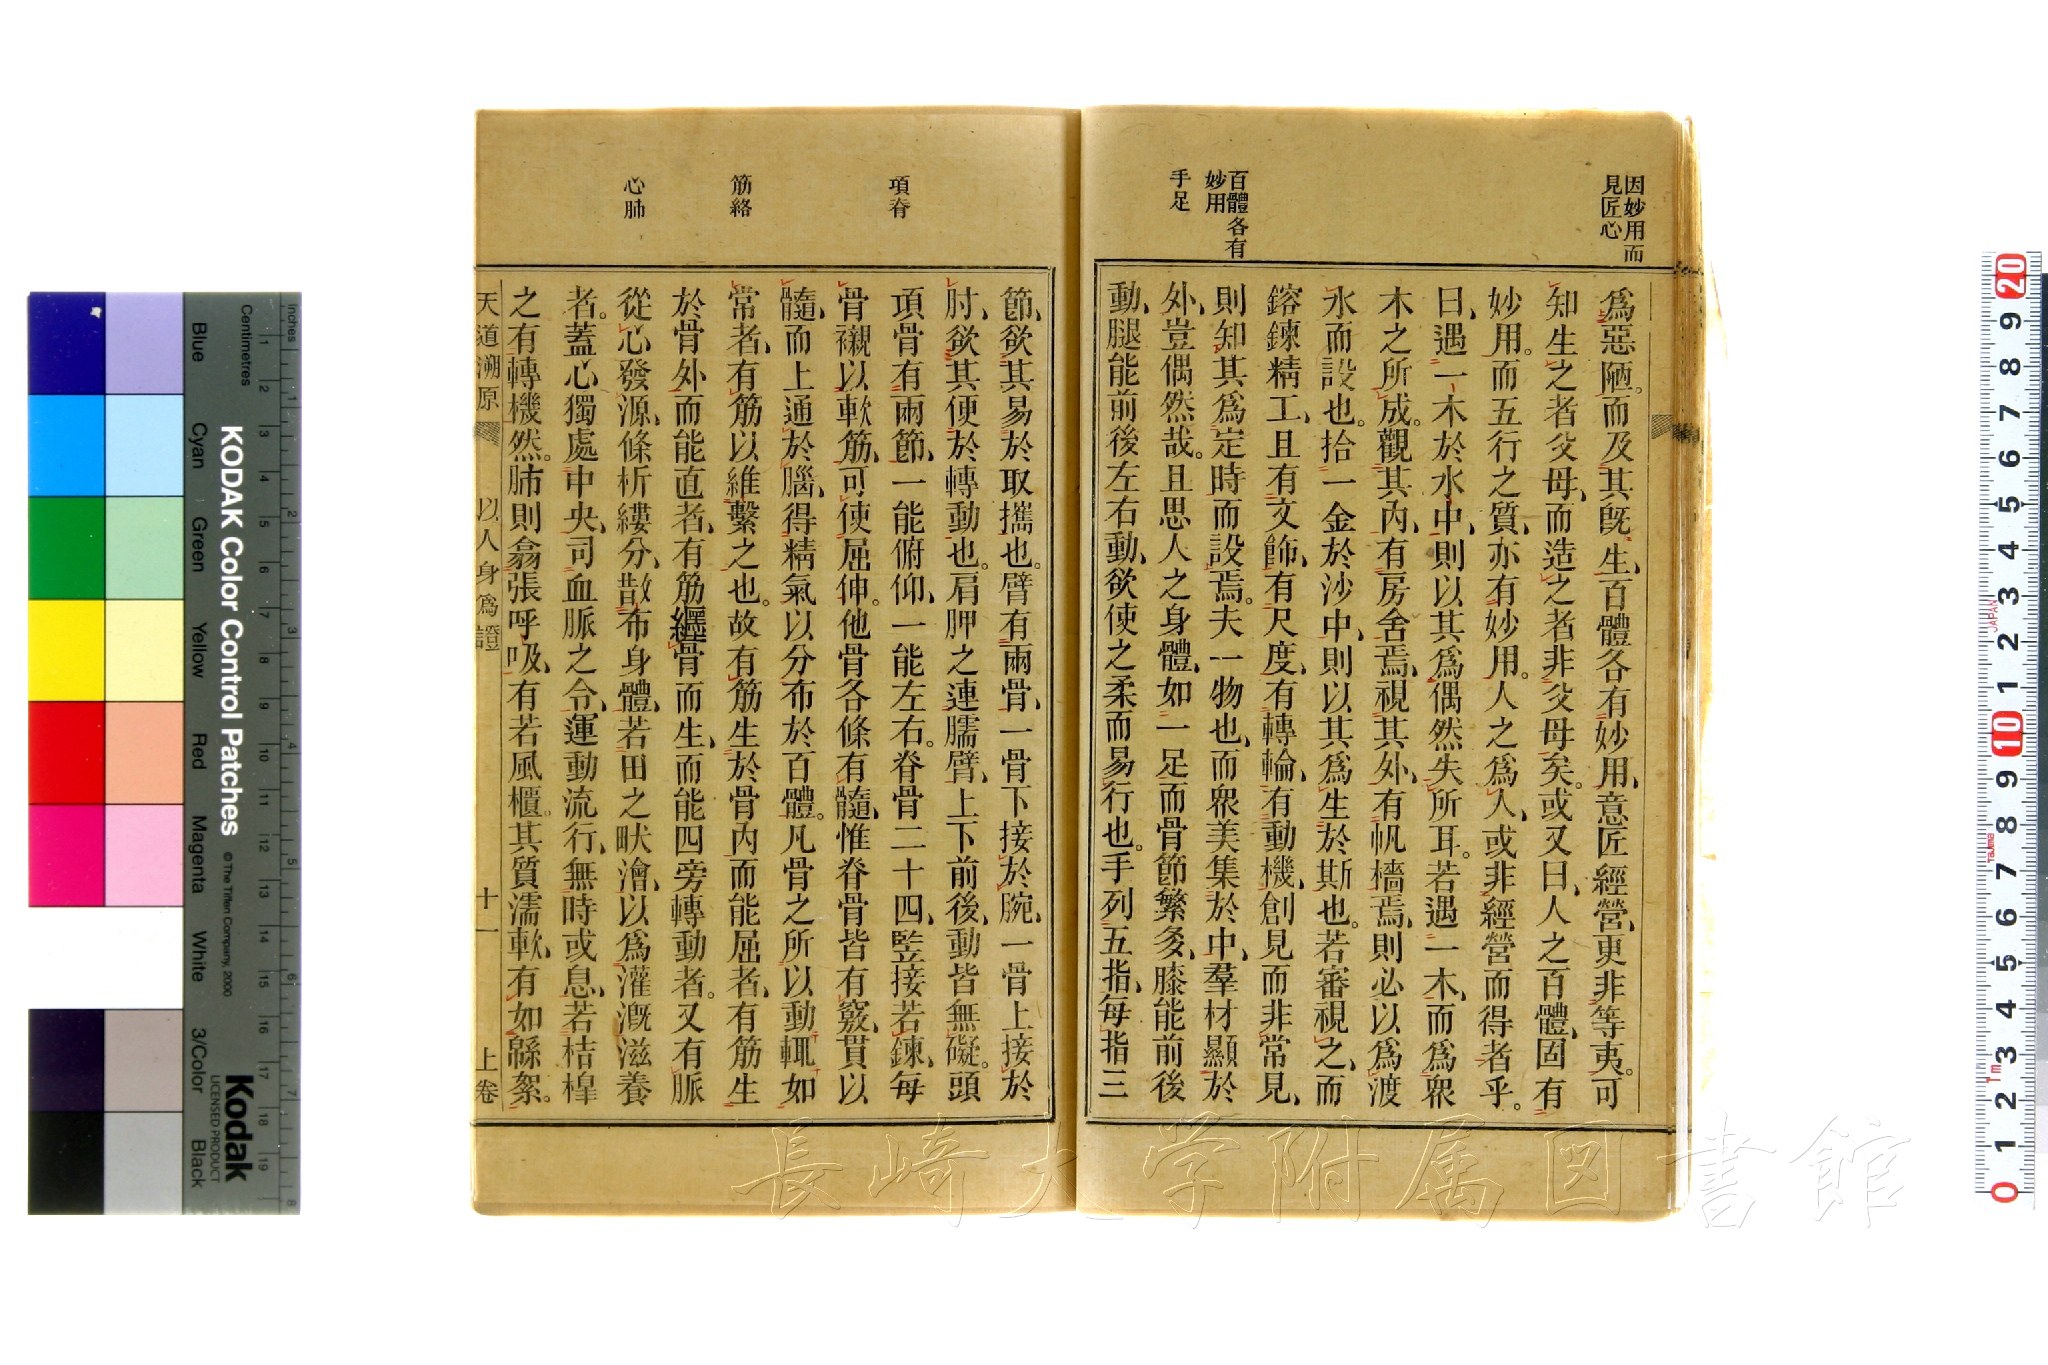 因妙用而
見匠心
百體各有
妙用
手足
爲惡陋。而及其旣生、百體各有妙用、意匠經營、更非等夷。可
知生之者父母、而造之者非父母矣。或又曰、人之百體、固有
妙用。而五行之質、亦有妙用。人之爲人、或非經營而得者乎。
曰、遇一木於水中、則以其爲偶然失所耳。若遇一木、而爲眾
木之所成。觀其內、有房舍焉、視其外、有帆檣焉、則必以爲渡
水而設也。拾一金於沙中、則以其爲生於斯也。若審視之、而
鎔鍊精工、且有文飾、有尺度、有轉輪、有動機、創見而非常見、
則知其爲定時而設焉。夫一物也、而眾美集於中、羣材顯於
外、豈偶然哉。且思人之身體、如一足而骨節繁多、膝能前後
動、腿能前後左右動、欲使之柔而易行也。手列五指、每指三
項脊
筋絡
心肺
節、欲其易於取攜也。臂有兩骨、一骨下接於腕、一骨上接於
肘、欲其便於轉動也。肩胛之連臑臂、上下前後、動皆無礙。頭
項骨有兩節、一能俯仰、一能左右。脊骨二十四、監接若鍊、每
骨襯以軟筋、可使屈伸。他骨各條有髓、惟脊骨皆有竅、貫以
髓、而上通於腦、得精氣以分布於百體。凡骨之所以動輒如
常者、有筋以維繫之也。故有筋生於骨內而能屈者、有筋生
於骨外而能直者、有筋纏骨而生、而能四旁轉動者。又有脈
從心發源、條析縷分、散布身體、若田之畎澮、以爲灌漑滋養
者。蓋心獨處中央、司血脈之令、運動流行、無時或息、若桔槹
之有轉機然。肺則翕張呼吸、有若風櫃。其質濡軟、有如緜絮。
天道溯原 以人身爲證 十一 上卷
長崎大学附属図書館
Inches
Centimetres
KODAK Color Control Patches
© The Tiffen Company, 2000
Kodak
LICENSED PRODUCT
Blue Cyan Green Yellow Red Magenta White 3/Color Black
1 2 3 4 5 6 7 8
1 2 3 4 5 6 7 8 9 10 11 12 13 14 15 16 17 18 19
20 9 8 7 6 5 4 3 2 1 10 9 8 7 6 5 4 3 2 1 0
JAPAN
Tajima
1m